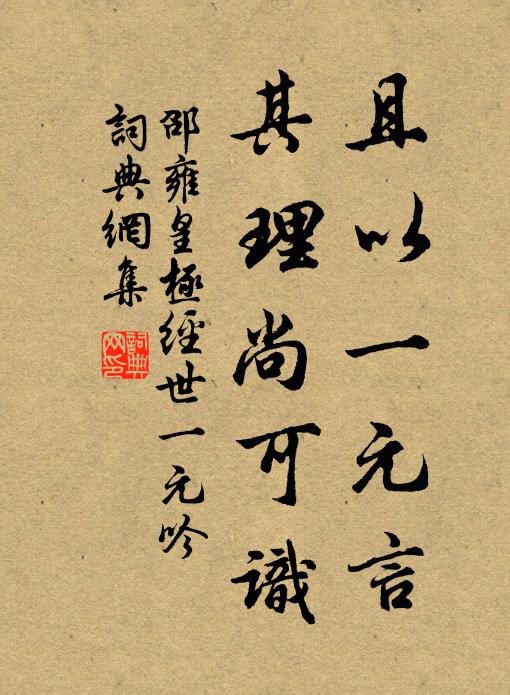 且以一元言
其理尚可識
邵雍皇極經世一元吟
詞典網集
詞典
网印